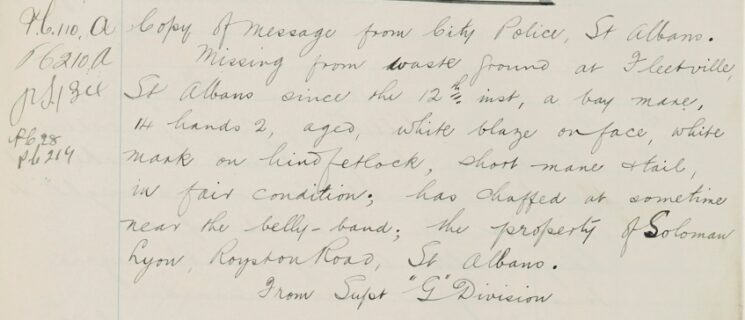 P.C. 110. A
P.C. 210. A
P.C. 28
P.C. 214
Copy of Message from City Police, St Albans.
Missing from waste ground at Fleetville,
St Albans since the 12th inst, a bay mare,
14 hands 2, aged, white blaze on face, white
mark on hind fetlock, short mane & tail,
in fair condition; has chaffed at sometime
near the belly-band; the property of Soloman
Lyon, Royston Road, St Albans.
From Supt "G" Division